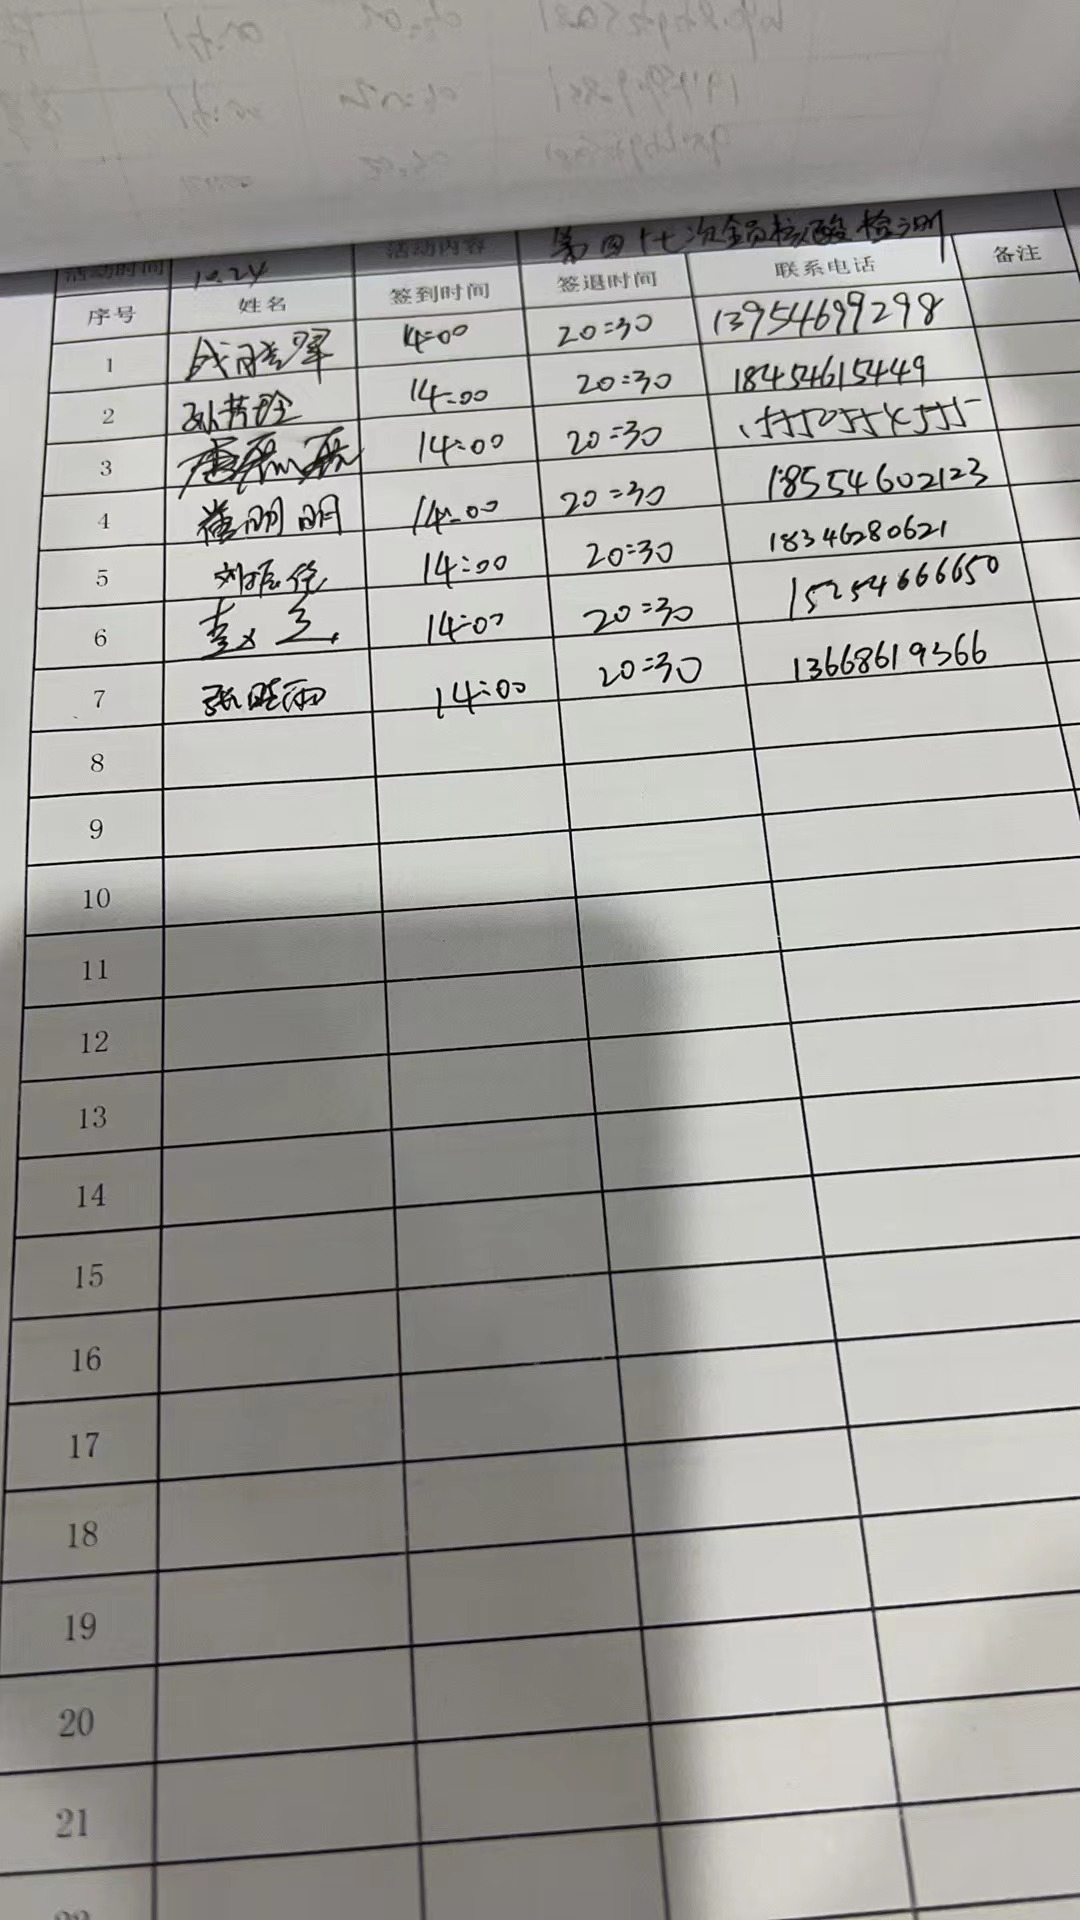 活动时间 10.24 活动内容 第四十七次全员核酸检测
序号 姓名 签到时间 签退时间 联系电话 备注
1 14:00 20:30 13954699298
2 14:00 20:30 18454615449
3 14:00 20:30
4 崔明明 14:00 20:30 18554602123
5 14:00 20:30 18346280621
6 14:00 20:30 15254666650
7 张晓雨 14:00 20:30 13668619366
8
9
10
11
12
13
14
15
16
17
18
19
20
21